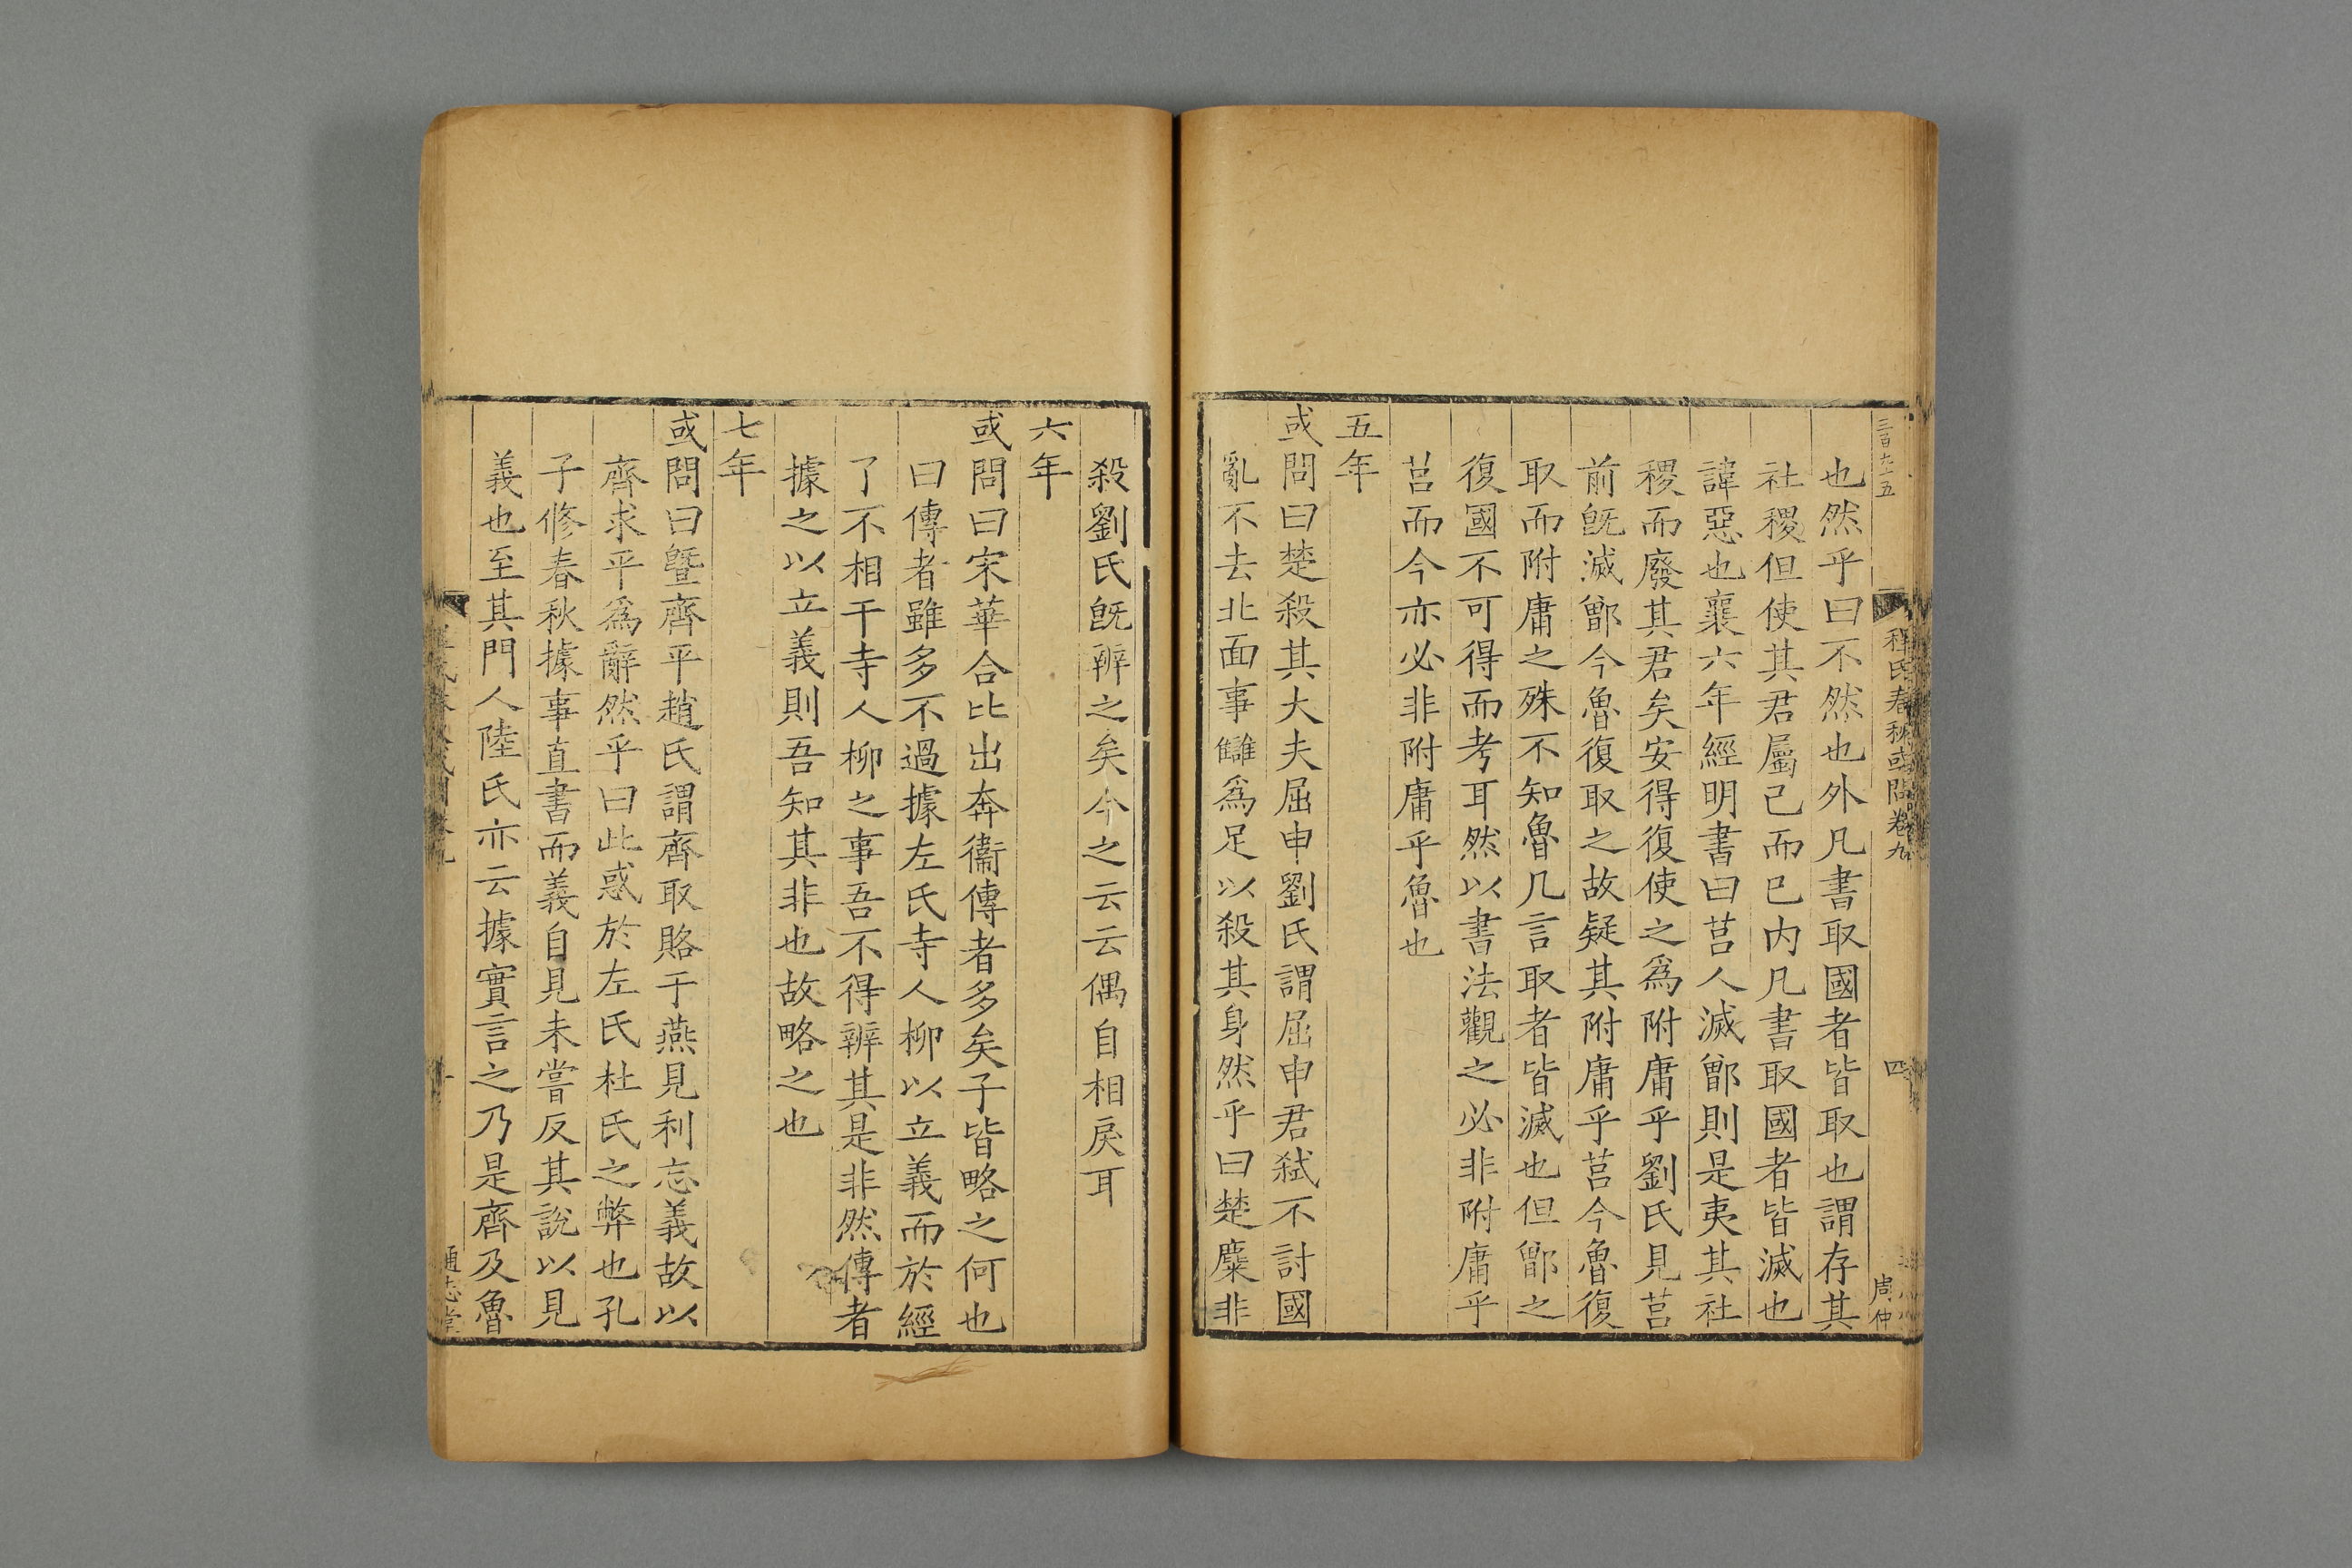 三百九十五
程氏春秋或問卷九
四
周仲
也然乎曰不然也外凡書取國者皆取也謂存其
社稷但使其君屬己而已内凡書取國者皆滅也
諱惡也襄六年經明書曰莒人滅鄫則是夷其社
稷而廢其君矣安得復使之爲附庸乎劉氏見莒
前旣滅鄫今魯復取之故疑其附庸乎莒今魯復
取而附庸之殊不知魯凡言取者皆滅也但鄫之
復國不可得而考耳然以書法觀之必非附庸乎
莒而今亦必非附庸乎魯也
五年
或問曰楚殺其大夫屈申劉氏謂屈申君弑不討國
亂不去北面事讎爲足以殺其身然乎曰楚麋非
殺劉氏旣辨之矣今之云云偶自相戾耳
六年
或問曰宋華合比出奔衞傳者多矣子皆略之何也
曰傳者雖多不過據左氏寺人柳以立義而於經
了不相干寺人柳之事吾不得辨其是非然傳者
據之以立義則吾知其非也故略之也
七年
或問曰曁齊平趙氏謂齊取賂于燕見利忘義故以
齊求平爲辭然乎曰此惑於左氏杜氏之弊也孔
子修春秋據事直書而義自見未嘗反其說以見
義也至其門人陸氏亦云據實言之乃是齊及魯
通志堂